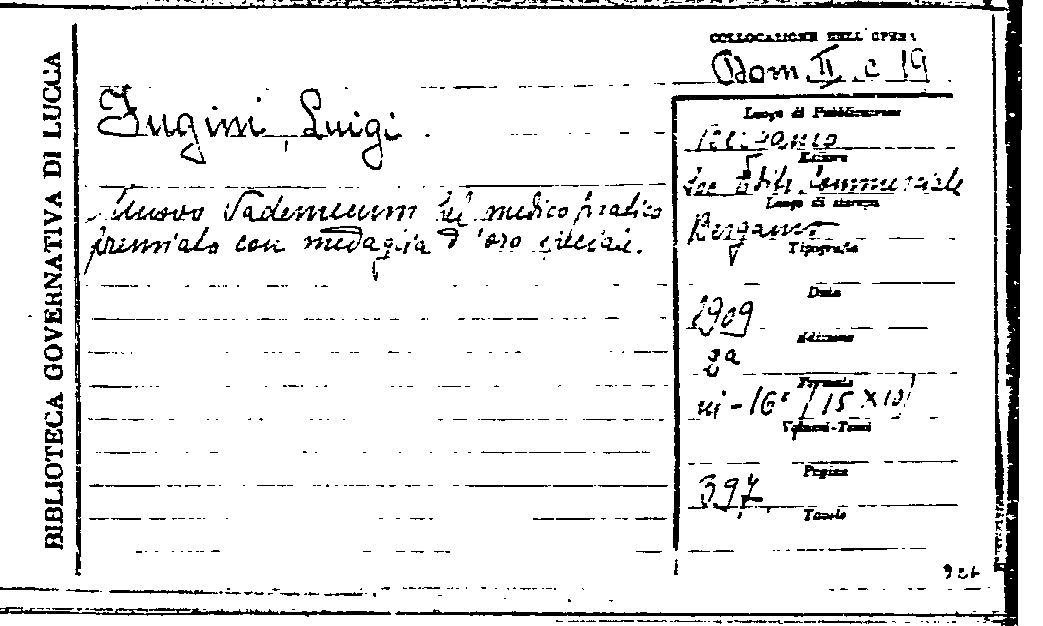 BIBLIOTECA GOVERNATIVA DI LUCCA
COLLOCAZIONE DELL'OPERA
Dom. II. c 19
Fugini, Luigi
Luogo di Pubblicazione
Bergamo
Editore
Soc. Edit. Commerciale
Luogo di stampa
Bergamo
Nuovo Vademecum del medico pratico
premiato con medaglia d'oro speciale.
Tipografia
Data
1909
Edizione
2ª
Formato
in-16° (15 x 10)
Volumi-Tomi
Pagine
397
Tavole